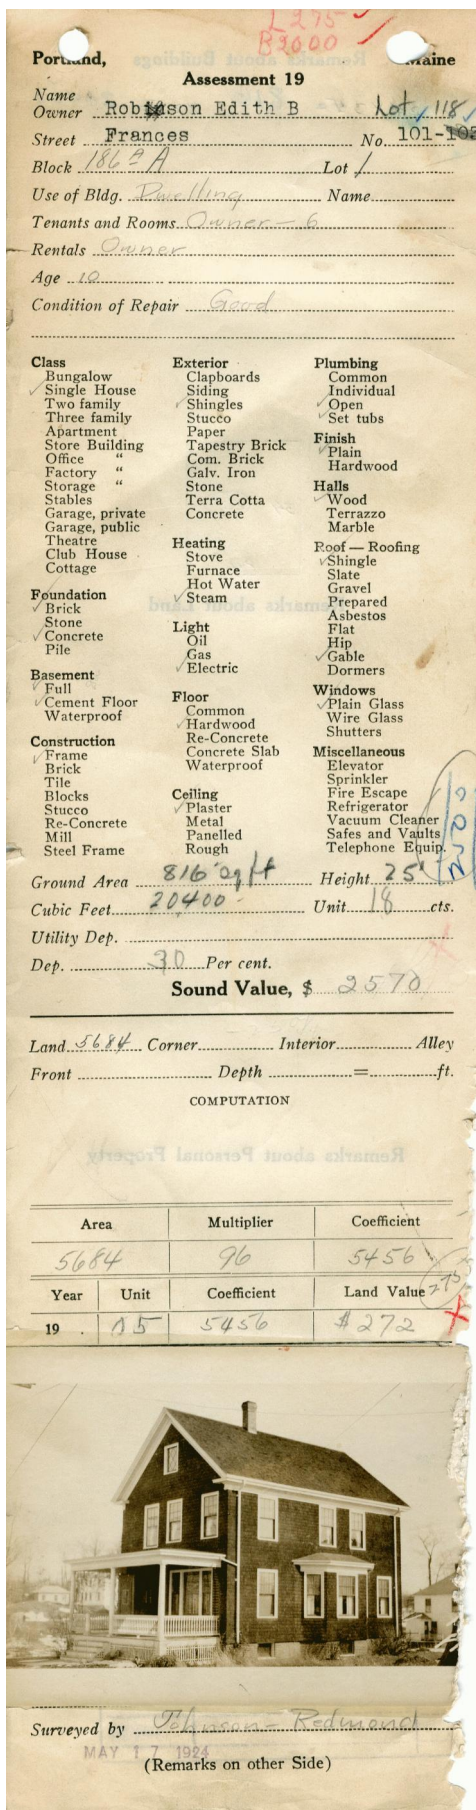 L 275
B 2600
Portland, Maine
Assessment 19
Name
Owner Robinson Edith B Lot 118
Street Frances No. 101-103
Block 186 A Lot 1
Use of Bldg. Dwelling Name
Tenants and Rooms Owner - 6
Rentals Owner
Age 10
Condition of Repair Good
Class
Bungalow
✓ Single House
Two family
Three family
Apartment
Store Building
Office "
Factory "
Storage "
Stables
Garage, private
Garage, public
Theatre
Club House
Cottage
Foundation
✓ Brick
Stone
✓ Concrete
Pile
Basement
✓ Full
✓ Cement Floor
Waterproof
Construction
✓ Frame
Brick
Tile
Blocks
Stucco
Re-Concrete
Mill
Steel Frame
Exterior
Clapboards
Siding
✓ Shingles
Stucco
Paper
Tapestry Brick
Com. Brick
Galv. Iron
Stone
Terra Cotta
Concrete
Heating
Stove
Furnace
Hot Water
✓ Steam
Light
Oil
Gas
✓ Electric
Floor
Common
✓ Hardwood
Re-Concrete
Concrete Slab
Waterproof
Ceiling
✓ Plaster
Metal
Panelled
Rough
Plumbing
Common
Individual
✓ Open
✓ Set tubs
Finish
✓ Plain
Hardwood
Halls
✓ Wood
Terrazzo
Marble
Roof — Roofing
✓ Shingle
Slate
Gravel
Prepared
Asbestos
Flat
Hip
✓ Gable
Dormers
Windows
✓ Plain Glass
Wire Glass
Shutters
Miscellaneous
Elevator
Sprinkler
Fire Escape
Refrigerator
Vacuum Cleaner
Safes and Vaults
Telephone Equip.
Ground Area 816 sq ft Height 25'
Cubic Feet 20400 Unit 18 cts.
Utility Dep.
Dep. 30 Per cent.
Sound Value, $ 2570
Land 5684 Corner Interior Alley
Front Depth = ft.
COMPUTATION
Remarks about Personal Property
Area Multiplier Coefficient
5684 96 5456
Year Unit Coefficient Land Value 275
19 .05 5456 $272
Surveyed by Johnson - Redmond
MAY 17 1924
(Remarks on other Side)